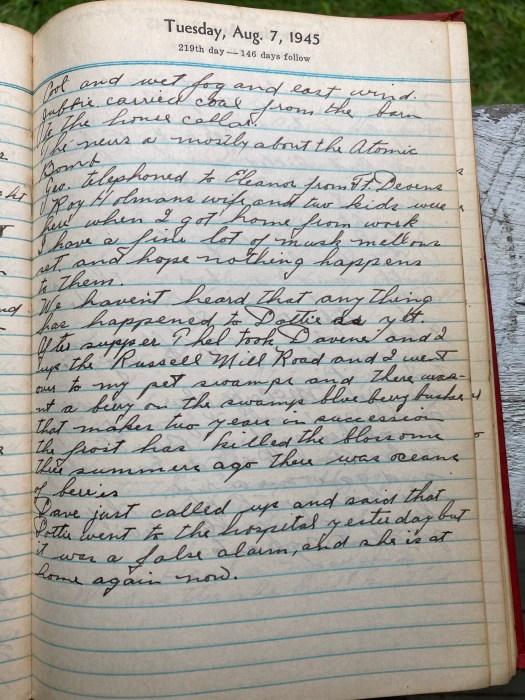 Tuesday, Aug. 7, 1945
219th day—146 days follow
Cool and wet fog and east wind.
carried coal from the barn
to the house cellar.
The news is mostly about the Atomic
Bomb
Geo. telephoned to Eleanor from Ft. Devens
Roy Holmans wife, and two kids were
here when I got home from work
I have a fine lot of musk mellons
set, and hope nothing happens
to them.
We havent heard that any thing
has happened to Dottie as yet.
After supper Thel took Davene and I
up the Russell Mill Road and I went
over to my pet swamps and there was-
nt a bery on the swamps blue bery bushes
that makes two years in succession
the frost has killed the blossoms
this summers ago there was oceans
of beries
Dave just called up and said that
Dottie went to the hospital yesterday but
it was a false alarm, and she is at
home again now.